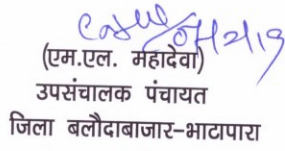 (एम.एल. महादेवा)
उपसंचालक पंचायत
जिला बलौदाबाजार-भाटापारा